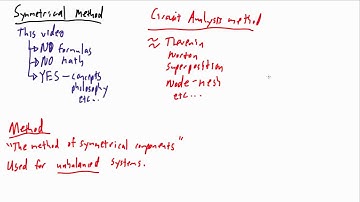 Symmetrical method
This video
NO formulas
NO math
YES - concepts
philosophy
etc...
Circuit Analysis method
≈ Thevenin
Norton
Superposition
Node-mesh
etc...
Method
"The method of symmetrical components"
Used for unbalanced systems.